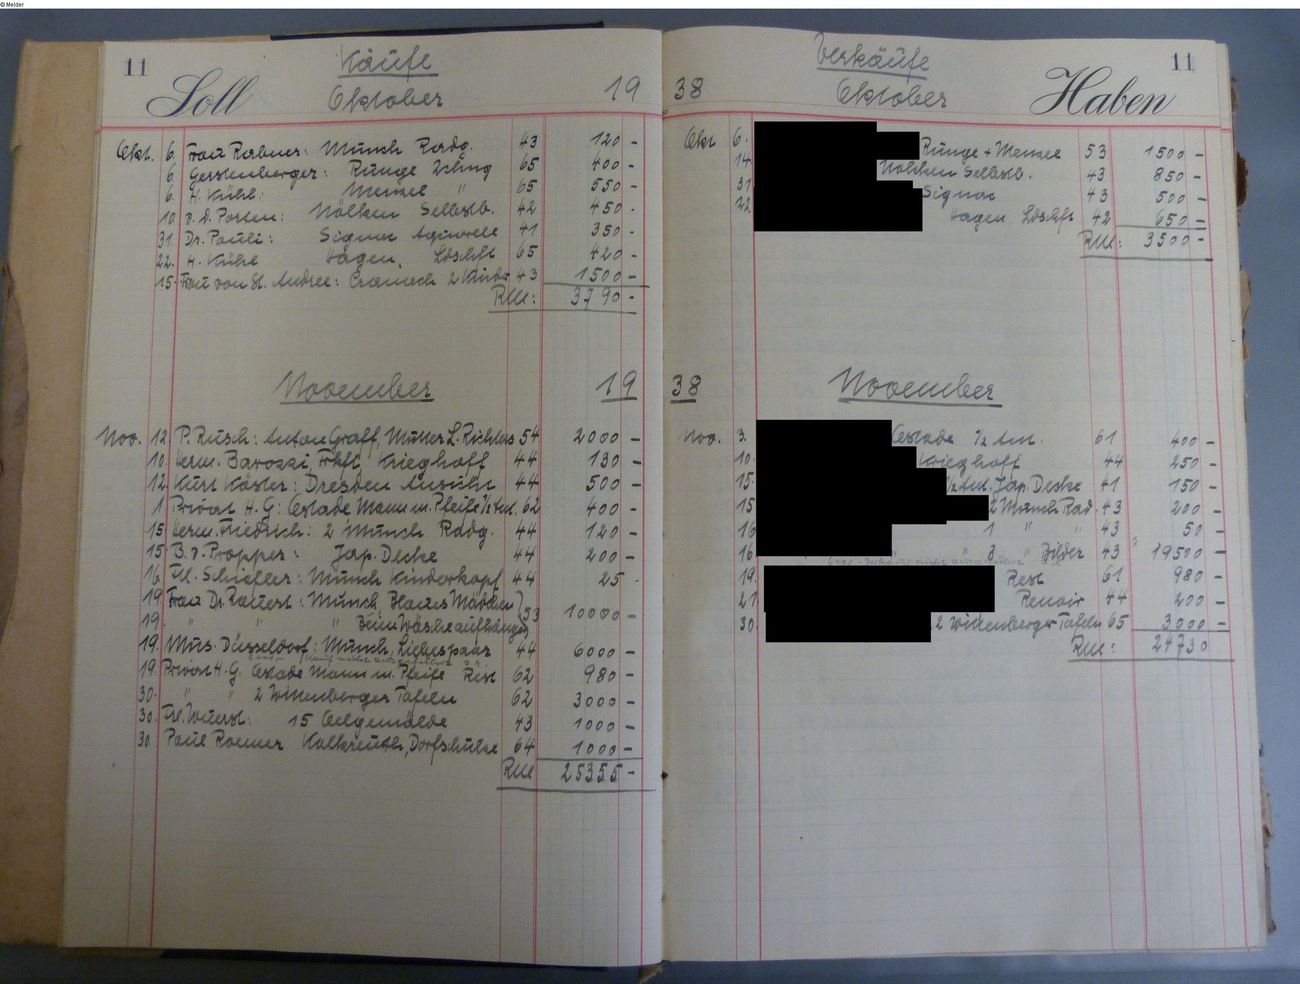 © Melder
11
Käufe
Soll
Oktober
19
Okt. 6. Frau Rabner: Munch Radg. 43 120 -
6 Gerstenberger: Runge Zchng 65 400 -
6. H. Kühl: Menzel " 65 550 -
10 v. d. Porten: Nölken Selbstb. 42 450 -
31. Dr. Pauli: Signac Aquarelle 41 350 -
22. H. Kühl Hagen, Ldschft 65 420 -
15. Frau von St. Andree: Cranach 2 Kinder 43 1500 -
RM: 3790 -
November 19
Nov. 12. P. Rusch: Anton Graff, Mutter L. Richters 54 2000 -
10. Herm. Baroski Frkft, Krieghoff 44 130 -
12. Kurt Köster: Dresden Ansicht 44 500 -
1 Privat H. G: Cezade Mann m. Pfeife ½ Ant. 62 400 -
15 Herm. Friedrich: 2 Munch Radg. 44 120 -
15. B. v. Propper: Jap. Decke 44 200 -
16 Frl. Schiefler: Munch Kinderkopf 44 25 -
19. Frau Dr. Rauert: Munch, Blaues Mädchen
19. " " " Beim Wäscheaufhängen 53 10000 -
19. Mus. Düsseldorf: Munch, Liebespaar 44 6000 -
19. Privat H. G. Cezade Mann m. Pfeife Rest 62 980 -
30. " " 2 Wittenberger Tafeln 62 3000 -
30. Frl. Wuerst: 15 Oelgemälde 43 1000 -
30 Paul Roemer Kalkreuth, Dorfschulze 64 1000 -
RM 25355 -
Verkäufe
11
38
Oktober
Haben
Okt 6. Runge + Menzel 53 1500 -
14. Nölken Selbstb. 43 850 -
31 Signac 43 500 -
22. Hagen Ldschft 42 650 -
RM: 3500 -
38 November
Nov. 3. Cezade ½ Ant. 61 400 -
10. Krieghoff 44 250 -
15. ½ Ant. Jap. Decke 41 150 -
15 2 Munch Rad. 43 200 -
16 1 " " 43 50 -
16 " 3 " Bilder 43 19500 -
19. Rest 61 980 -
21. Renoir 44 200 -
30. 2 Wittenberger Tafeln 65 3000 -
RM: 24730 -